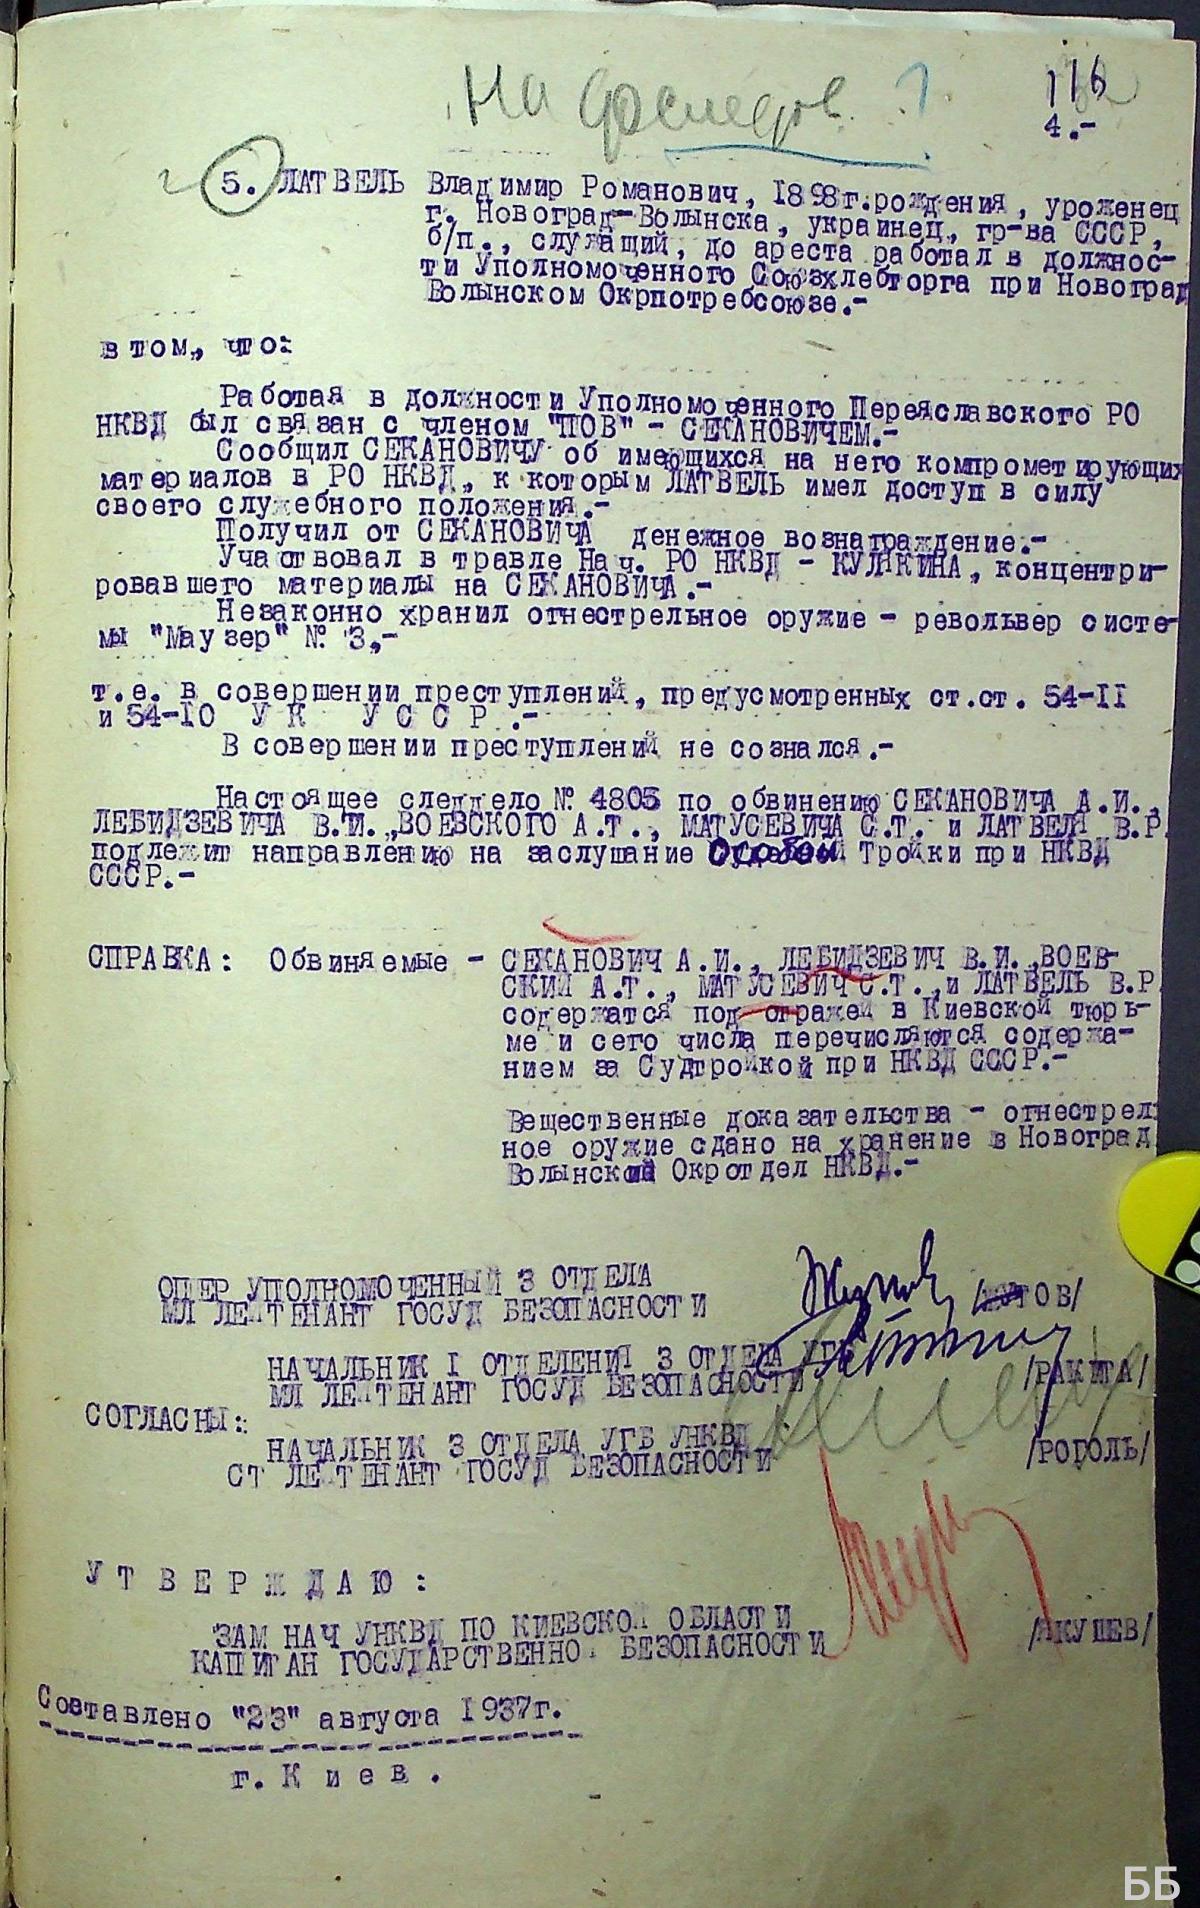 На доследов.
116
4.-
5. ЛАТВЕЛЬ Владимир Романович, 1898г.рождения, уроженец
г. Новоград-Волынска, украинец, гр-ва СССР,
б/п., служащий, до ареста работал в должнос-
ти Уполномоченного Союзхлебторга при Новоград
Волынском Окрпотребсоюзе.-
в том, что:
Работая в должности Уполномоченного Переяславского РО
НКВД был связан с членом "ПОВ" - СЕКАНОВИЧЕМ.-
Сообщил СЕКАНОВИЧУ об имеющихся на него компрометирующих
материалов в РО НКВД, к которым ЛАТВЕЛЬ имел доступ в силу
своего служебного положения.-
Получил от СЕКАНОВИЧА денежное вознаграждение.-
Участвовал в травле Нач. РО НКВД - КУЛИКИНА, концентри-
ровавшего материалы на СЕКАНОВИЧА.-
Незаконно хранил огнестрельное оружие - револьвер систе-
мы "Маузер" №. 3,-
т.е. в совершении преступлений, предусмотренных ст.ст. 54-II
и 54-IO У К У С С Р .-
В совершении преступлений не сознался.-
Настоящее следдело №. 4805 по обвинению СЕКАНОВИЧА А.И.,
ЛЕБИДЗЕВИЧА В.И.,ВОЕВСКОГО А.Т., МАТУСЕВИЧА С.Т. и ЛАТВЕЛЯ В.Р.
подлежит направлению на заслушание Особой Тройки при НКВД
СССР.-
СПРАВКА: Обвиняемые - СЕКАНОВИЧ А.И., ЛЕБИДЗЕВИЧ В.И.,ВОЕВ-
СКИЙ А.Т., МАТУСЕВИЧ С.Т.,и ЛАТВЕЛЬ В.Р.
содержатся под стражей в Киевской тюрь-
ме и сего числа перечисляются содержа-
нием за Судтройкой при НКВД СССР.-
Вещественные доказательства - огнестрель
ное оружие сдано на хранение в Новоград
Волынский Окротдел НКВД.-
ОПЕР УПОЛНОМОЧЕННЫЙ 3 ОТДЕЛА
МЛ ЛЕЙТЕНАНТ ГОСУД БЕЗОПАСНОСТИ
НАЧАЛЬНИК I ОТДЕЛЕНИЯ 3 ОТДЕЛА УГБ
МЛ ЛЕЙТЕНАНТ ГОСУД БЕЗОПАСНОСТИ /РАКИТА/
СОГЛАСНЫ::
НАЧАЛЬНИК 3 ОТДЕЛА УГБ УНКВД
СТ ЛЕЙТЕНАНТ ГОСУД БЕЗОПАСНОСТИ /РОГОЛЬ/
У Т В Е Р Ж Д А Ю :
ЗАМ НАЧ УНКВД ПО КИЕВСКОЙ ОБЛАСТИ
КАПИТАН ГОСУДАРСТВЕННОЙ БЕЗОПАСНОСТИ /ЯКУШЕВ/
Составлено "23" августа 1937г.
г. К и е в .
ББ